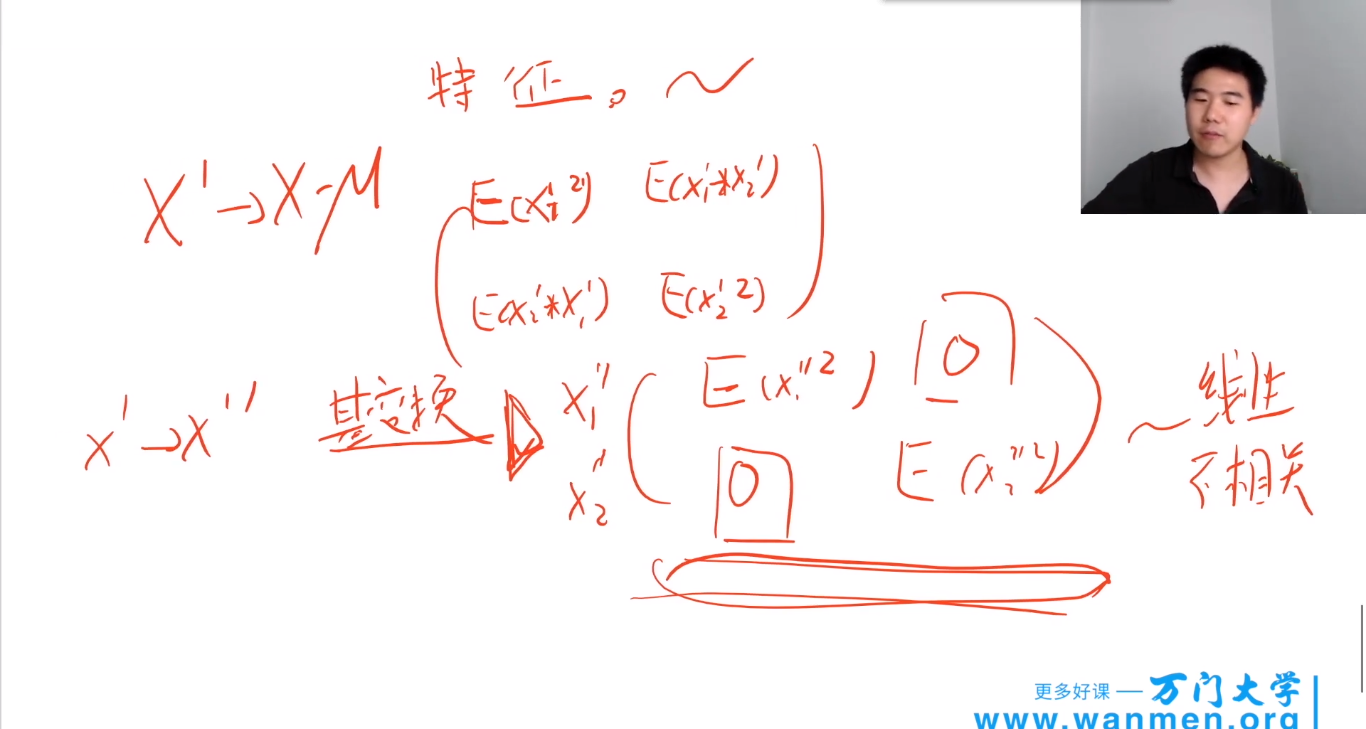 特征。~
X' → X-μ
E(x₁'²) E(x₁'*x₂')
E(x₂'*x₁') E(x₂'²)
x' → x'' 基变换
x₁'' E(x₁''²) 0
x₂'' 0 E(x₂''²)
~ 线性
不相关
更多好课 — 万门大学
www.wanmen.org